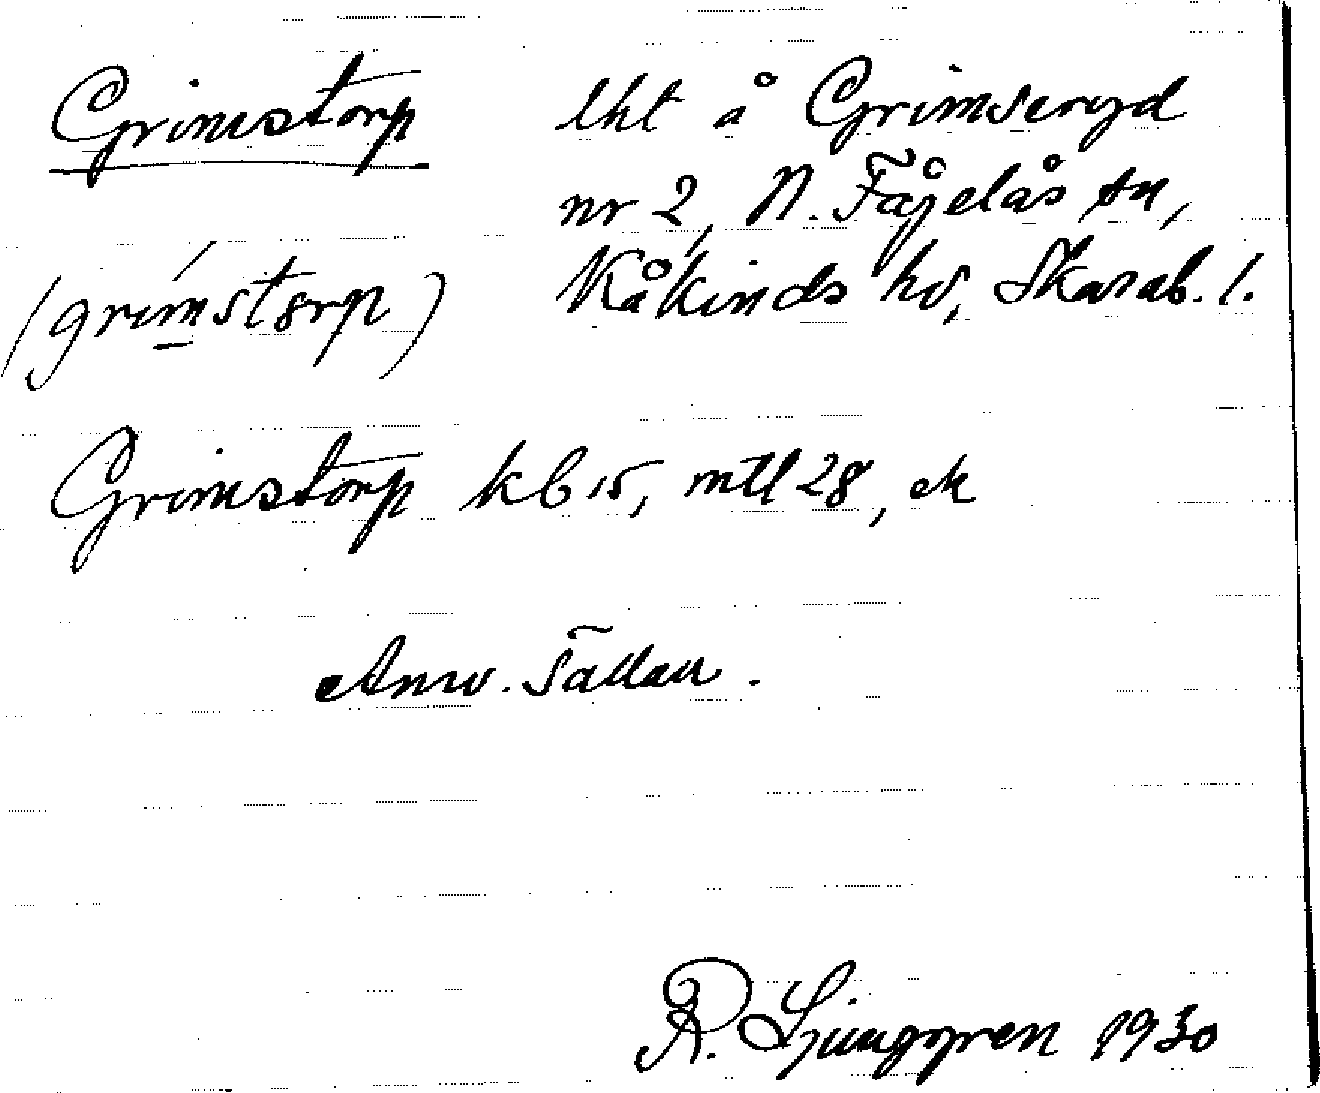 Grimstorp lht å Grimseryd
nr 2, N. Fågelås sn,
(grimstorp) Kåkinds hd, Skarab. l.
Grimstorp kb 15, mtl 28, ek
Anv. Sällan.
R. Ljunggren 1930